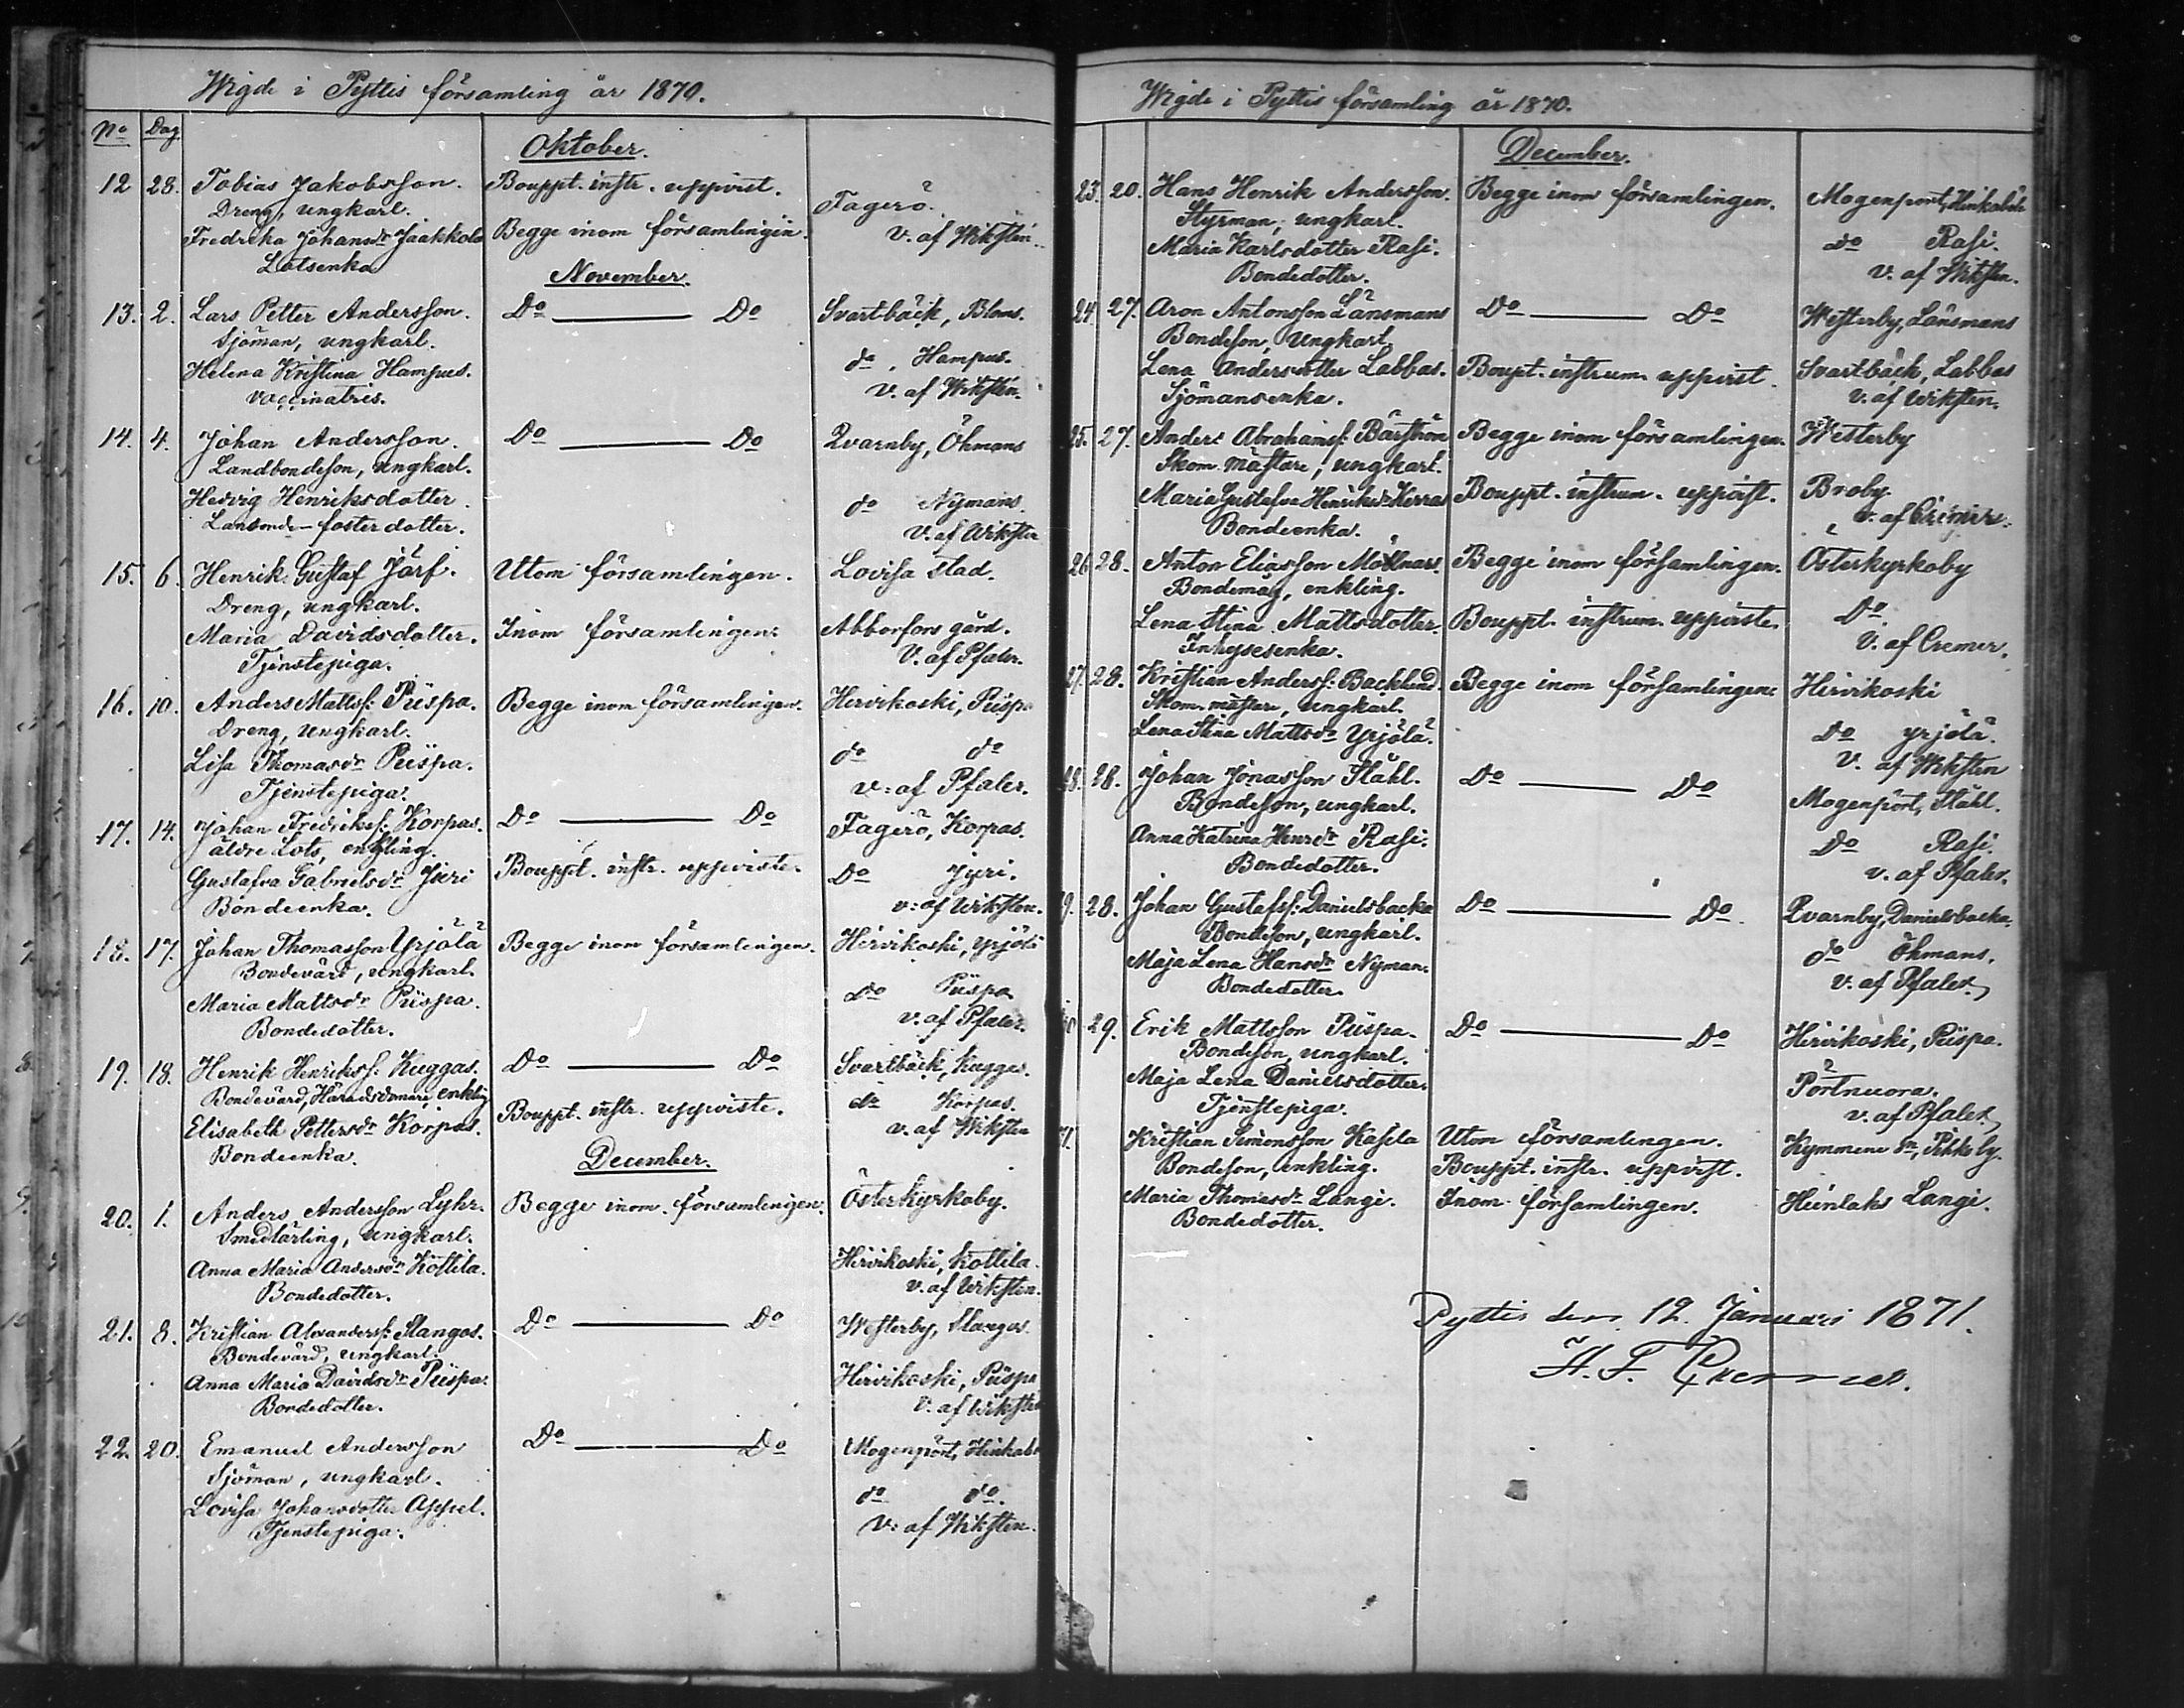 Wigde i Pyttis församling år 1870.
No Dag
Oktober.
12 28. Tobias Jakobsson. Bouppt. instr. uppvist. Fagerö.
Dreng, ungkarl.
Fredrika Johansdr Jaakkola Begge inom församlingen. v. af Wiksten.
Lotsenka
November.
13. 2. Lars Petter Andersson. Do Do Svartbäck, Bloms.
Sjöman, ungkarl.
Helena Kristina Hampus. do, Hampus.
vaccinatris. v. af Wiksten.
14. 4. Johan Andersson. Do Do Qvarnby, Öhmans
Landbondeson, ungkarl.
Hedvig Henriksdotter do Nymans.
fosterdotter. v. af Wiksten
15. 6. Henrik Gustaf Järf. Utom församlingen. Lovisa stad.
Dreng, ungkarl.
Maria Davidsdotter. Inom församlingen. Abborfors gård.
Tjenstepiga. V. af Pfaler.
16. 10. Anders Mattss: Piispa. Begge inom församlingen. Hirvikoski, Piispa
Dreng, ungkarl.
Lisa Thomasdr Piispa. do do
Tjenstepiga. v. af Pfaler.
17. 14. Johan Fredrikss: Korpas. Do Do Fagerö, Korpas.
äldre Lots, enkling.
Gustafva Gabrielsdr Jyri Bouppt. instr. uppviste. Do Jyri.
Bondeenka. v. af Wiksten.
18. 17. Johan Thomasson Yrjölä Begge inom församlingen. Hirvikoski, Yrjölä
Bondevärd, ungkarl.
Maria Mattsdr Piispa. do Piispa
Bondedotter. v. af Pfaler.
19. 18. Henrik Henrikss: Kuggas. Do Do Svartbäck, Kuggas.
Bondevärd, Häradsdomare, enkling
Elisabeth Pettersdr Korpas. Bouppt. instr. uppviste. do Korpas.
Bondeenka. v. af Wiksten
December.
20. 1. Anders Andersson Lyhr. Begge inom församlingen. Österkyrkoby.
Smedlärling, ungkarl.
Anna Maria Andersdr Kottila. Hirvikoski, Kottila.
Bondedotter. v. af Wiksten.
21. 8. Kristian Alexanderss: Slangas. Do Do Westerby, Slangas
Bondevärd, ungkarl.
Anna Maria Davidsdr Piispa. Hirvikoski, Piispa
Bondedotter. v. af Wiksten
22. 20. Emanuel Andersson Do Do Mogenpört, Hinkabö
Sjöman, ungkarl.
Lovisa Johansdotter Appel. do do.
Tjenstepiga. v. af Wiksten.
Wigde i Pyttis församling år 1870.
December.
23. 20. Hans Henrik Andersson. Begge inom församlingen. Mogenpört, Hinkaböle
Styrman, ungkarl.
Maria Karlsdotter Rasi. do Rasi.
Bondedotter. v. af Wiksten.
24. 27. Aron Antonsson Länsmans Do Do Westerby, Länsmans
Bondeson, ungkarl.
Lena Andersdotter Labbas. Boupt. instrum. uppvist. Svartbäck, Labbas
Sjömansenka. v. af Wiksten.
25. 27. Anders Abrahamss: Begge inom församlingen. Westerby
Skom. mästare, ungkarl.
Maria Gustafva Henriksdr Kerras Bouppt. instrum. uppvist. Broby.
Bondeenka. v. af Cremer.
26 28. Anton Eliasson Möllnars. Begge inom församlingen. Österkyrkoby
Bondemåg, enkling.
Lena Stina Mattsdotter. Bouppt. instrum. uppviste. Do.
Inhysesenka. v. af Cremer.
27. 28. Kristian Anderss: Backlund. Begge inom församlingen. Hirvikoski
Skom. mästare, ungkarl.
Lena Stina Mattsdr Yrjölä. Do Yrjölä.
v. af Wiksten
28. 28. Johan Jonasson Ståhl. Do Do Mogenpört, Ståhl.
Bondeson, ungkarl.
Anna Katrina Henrdr Rasi. Do Rasi.
Bondedotter. v. af Pfaler.
9. 28. Johan Gustafss: Danielsbacka Do Do Qvarnby, Danielsbacka.
Bondeson, ungkarl.
Maja Lena Hansdr Nyman. do Öhmans.
Bondedotter. v. af Pfaler.
30 29. Erik Mattsson Piispa. Do Do Hirvikoski, Piispa.
Bondeson, ungkarl.
Maja Lena Danielsdotter. Pörtnuora.
Tjenstepiga. v. af Pfaler.
31. Kristian Simonsson Kasela Utom församlingen. Kymmene sn,
Bondeson, enkling. Bouppt. instr. uppvist.
Maria Thomasdr Langi. Inom församlingen. Heinlaks Langi.
Bondedotter.
Pyttis den 12 Januari 1871.
H. F. Cremer.